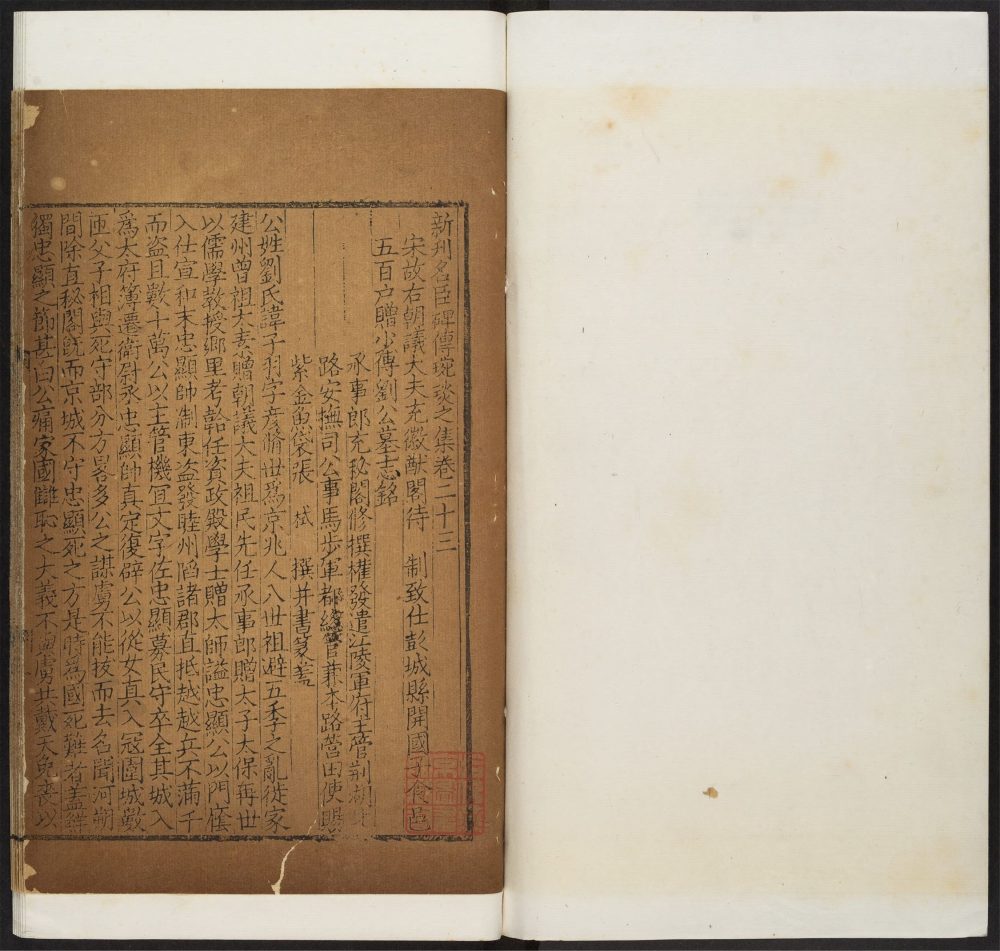 新刋名臣碑傳琬琰之集卷二十三
宋故右朝議大夫充徽猷閣待　制致仕彭城縣開國子食邑
五百户贈少傅劉公墓志銘
承事郎充秘閣修撰權發遣江陵軍府主管荆湖
路安撫司公事馬步軍都緫管兼本路營田使賜
紫金魚袋張　栻　撰并書篆盖
公姓劉氏諱子羽字彦脩世爲京兆人八世祖避五季之亂徙家
建州曾祖太素贈朝議大夫祖民先任承事郎贈太子太保再世
以儒學教授鄉里考韐任資政殿學士贈太師謚忠顯公以門廕
入仕宣和末忠顯帥淛東盗發睦州陷諸郡直抵越越兵不滿千
而盗且數十萬公以主管機冝文字佐忠顯募民守卒全其城入
爲太府簿遷衛尉丞忠顯帥真定復辟公以從女真入冦圍城數
匝父子相與死守部分方畧多公之謀虜不能拔而去名聞河朔
間除直秘閣旣而京城不守忠顯死之方是時爲國死難者盖鮮
獨忠顯之節甚白公痛家國讎恥之大義不與虜共戴天免喪以